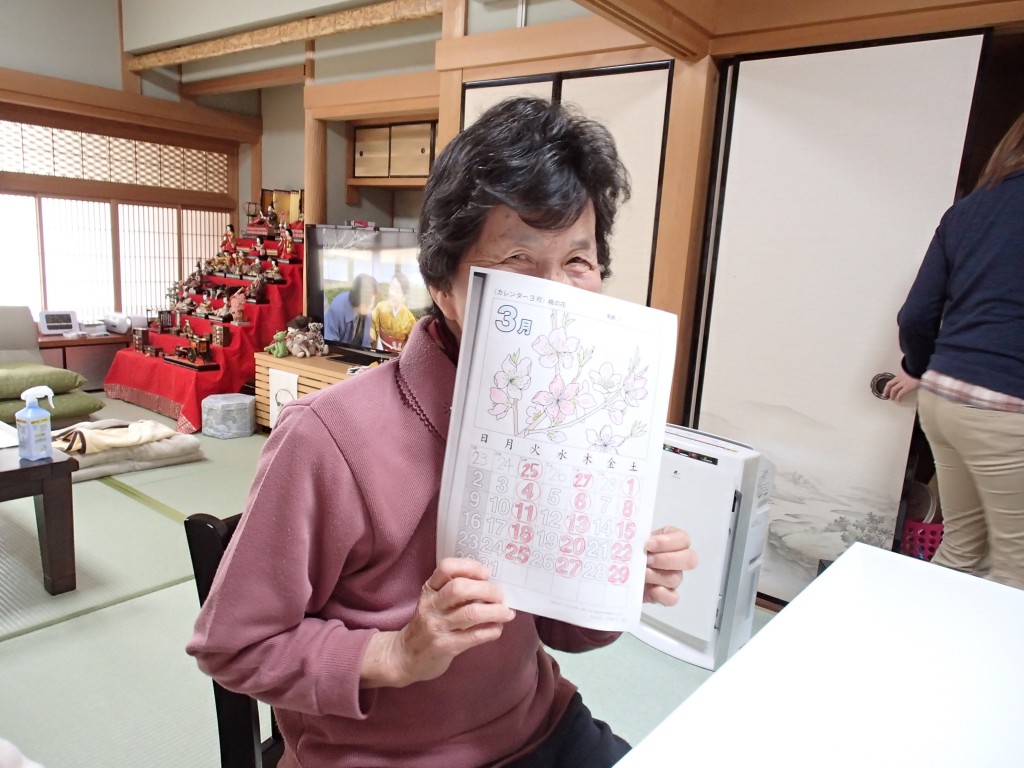 (カレンダー3月) 桃の花
3月
日 月 火 水 木 金 土
23 24 25 26 27 28 1
2 3 4 5 6 7 8
9 10 11 12 13 14 15
16 17 18 19 20 21 22
23 24 25 26 27 28 29
31